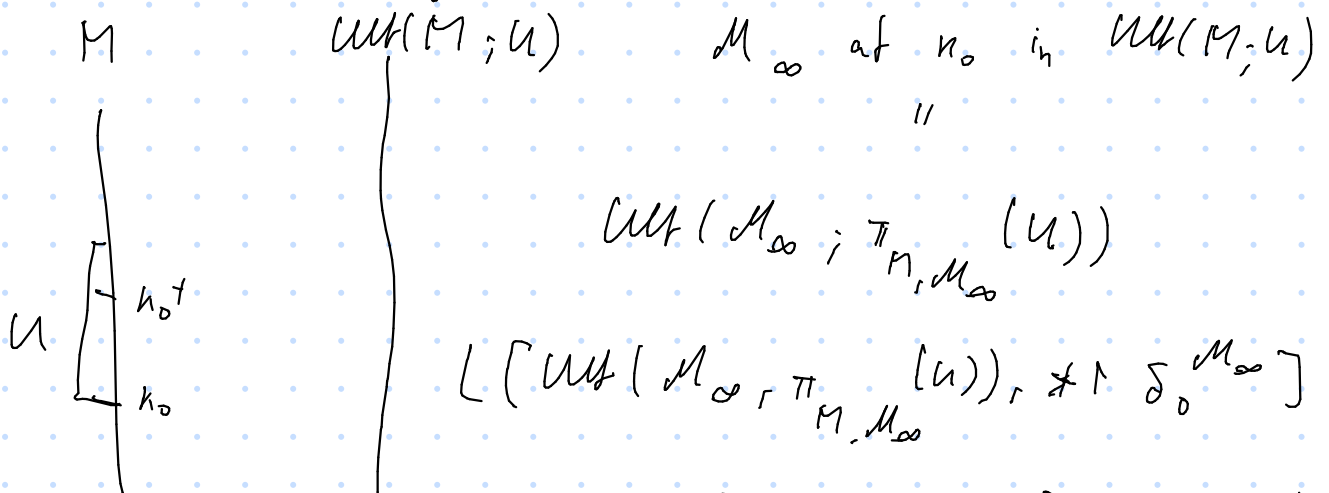 M Ult(M; U) M_∞ at κ_0 in Ult(M; U)
"
Ult(M_∞; π_{M,M_∞}(U))
κ_0^+
U
L[Ult(M_∞, π_{M,M_∞}(U)), * ↾ δ_0^{M_∞}]
κ_0